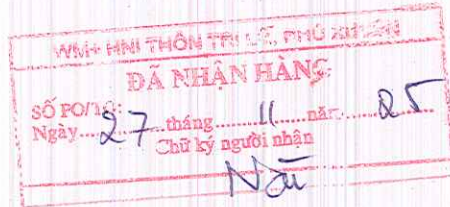 WM+ HNI THÔN TRI LỄ, PHÚ XUYÊN
ĐÃ NHẬN HÀNG
SỐ PO/
Ngày 27 tháng 11 năm 25
Chữ ký người nhận